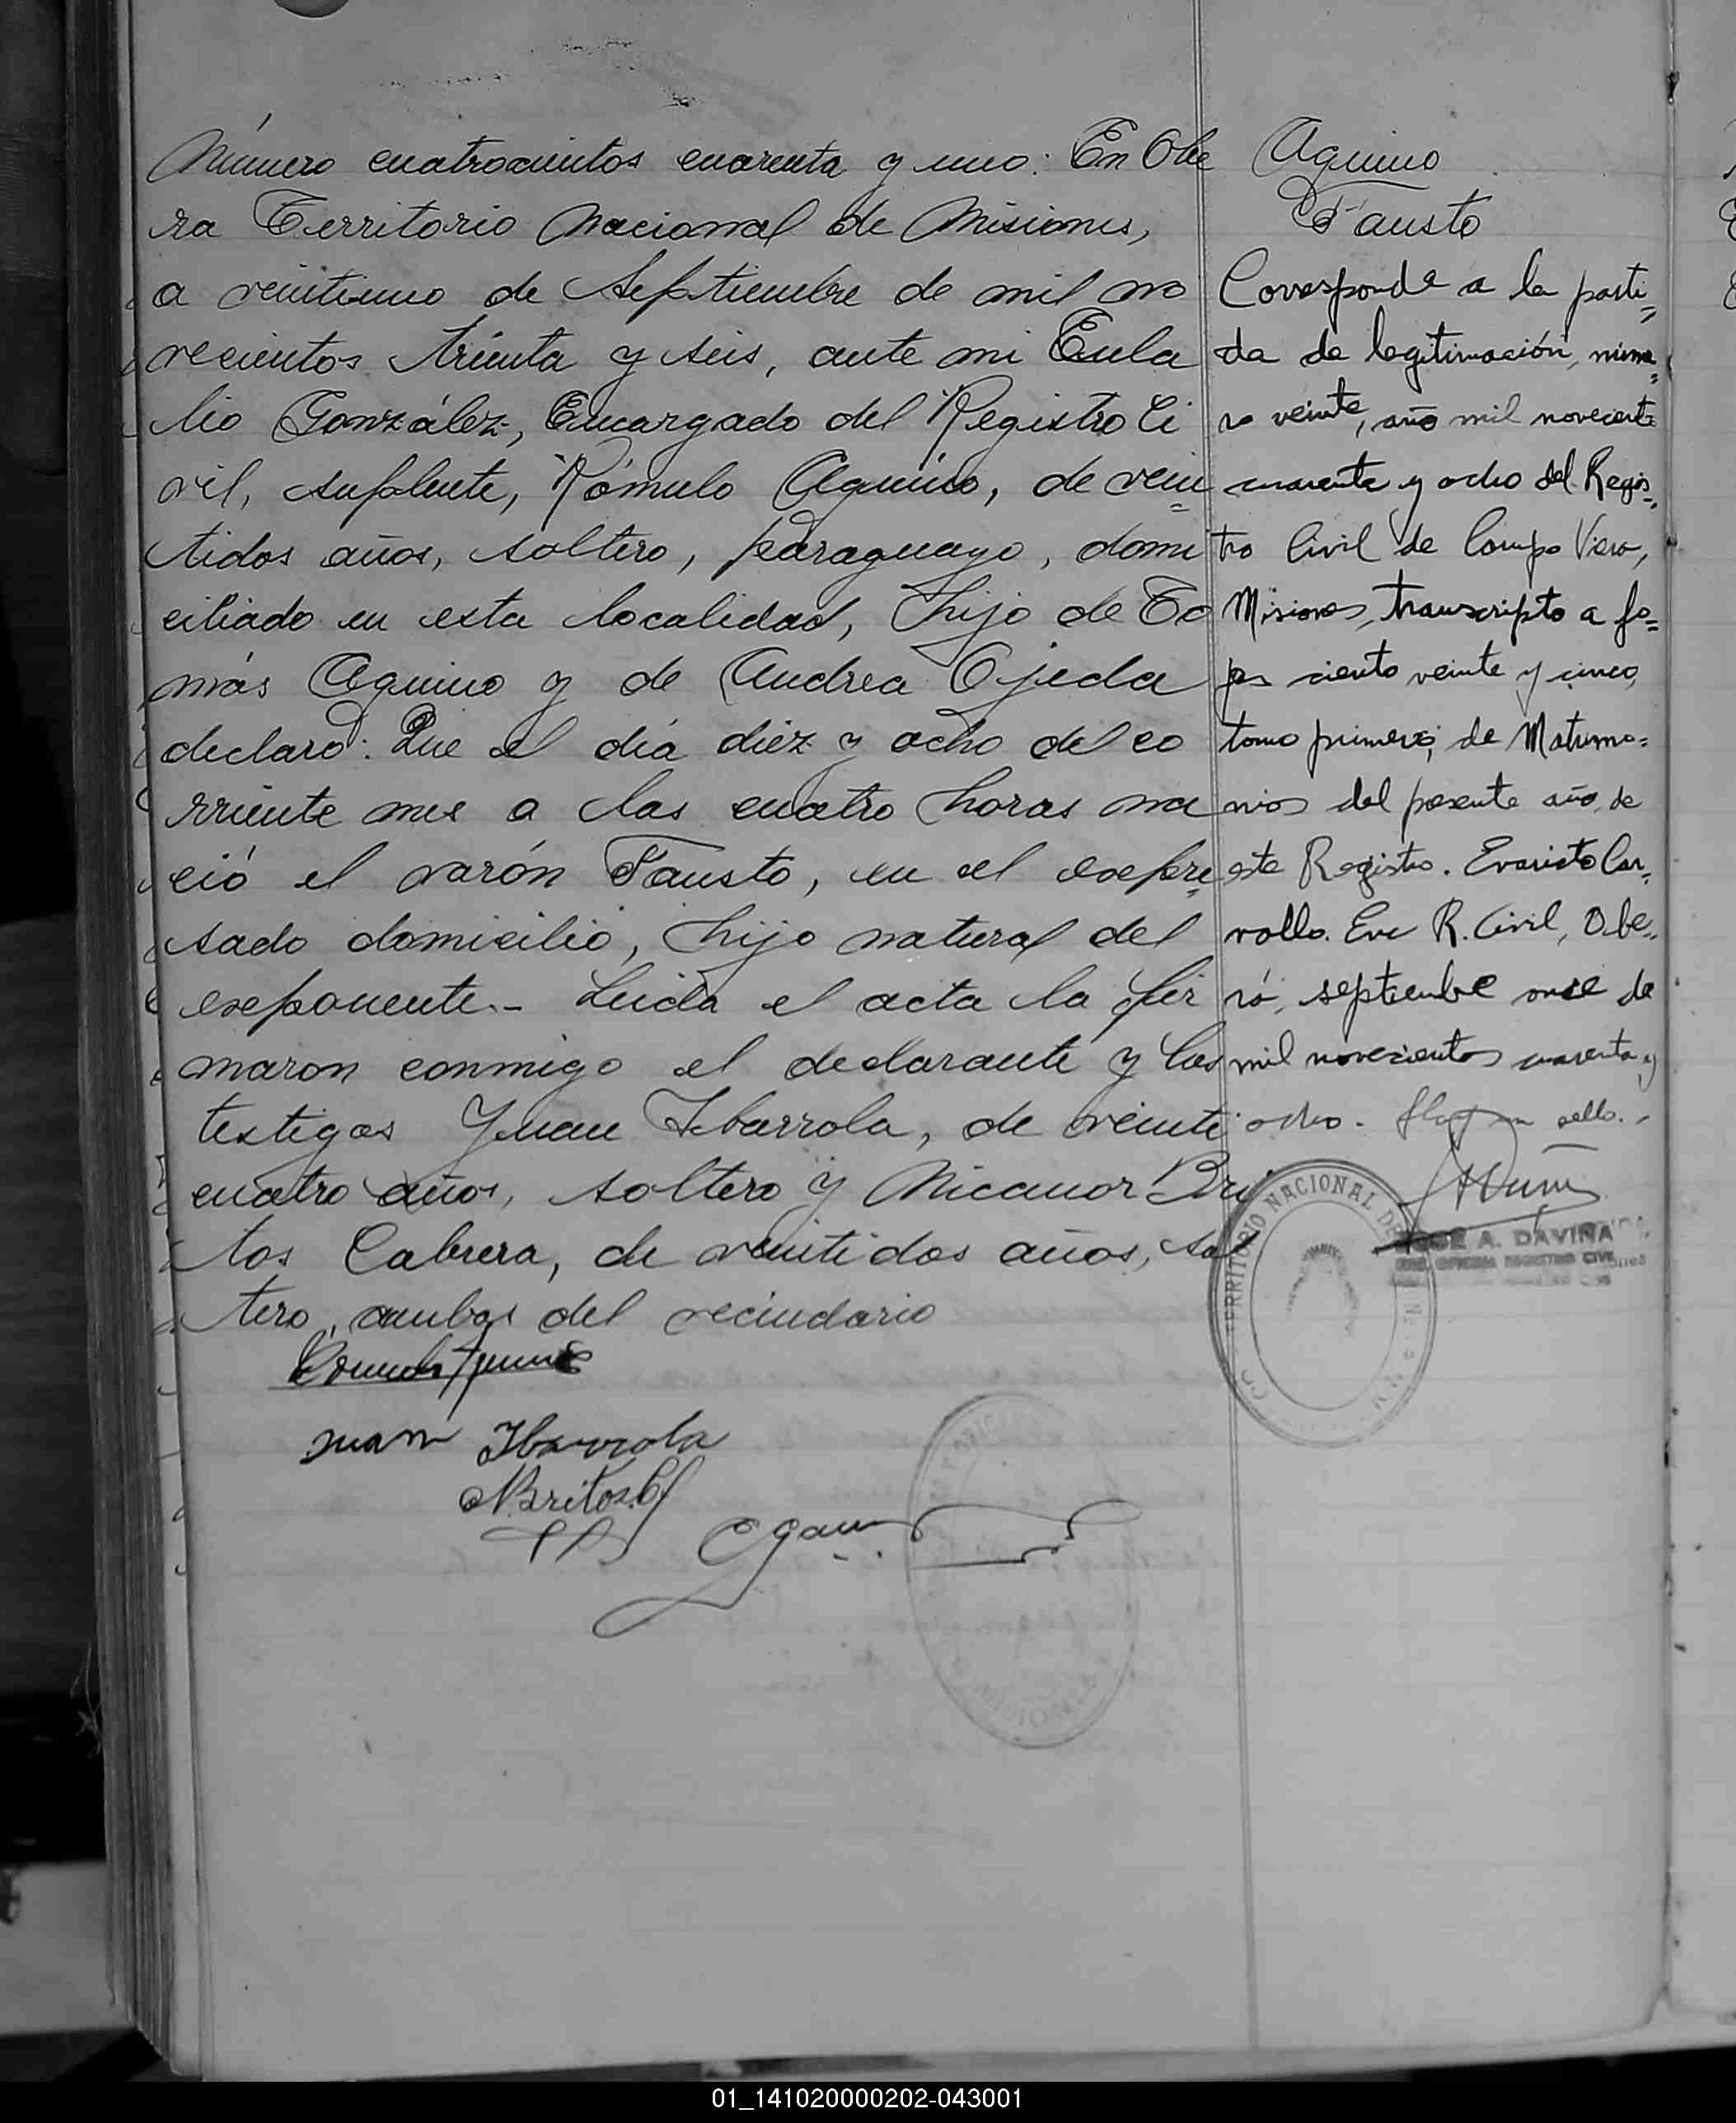 Número cuatrocientos cuarenta y uno: En Obe
ra Territorio Nacional de Misiones,
a veintiuno de Septiembre de mil no
vecientos treinta y seis, ante mi Eula
lio González, Encargado del Registro Ci
vil, suplente, Rómulo Aquino, de vein
tidos años, soltero, paraguayo, domi
ciliado en esta localidad, hijo de To
más Aquino y de Andrea Ojeda
declaró: Que el día diez y ocho del co
rriente mes a las cuatro horas na
ció el varón Fausto, en el expre
sado domicilio, hijo natural del
exponente.- Leida el acta la fir
maron conmigo el declarante y los
testigos Juan Ibarrola, de veinti
cuatro años, soltero y Nicanor Bri
tos Cabrera, de veintidos años, sol
tero, ambos del vecindario
Juan Ibarrola
NBritos C
Aquino
Fausto
Corresponde a la parti=
da de legitimación, núme=
ro veinte, año mil novecientos
cuarenta y ocho del Regis=
tro Civil de Campo Viera,
Misiones, transcripto a fo=
jas ciento veinte y cinco,
tomo primero, de Matrimo=
nios del presente año, de
este Registro. Evaristo Car=
vallo. Enc R. Civil, Obe=
rá, septiembre once de
mil novecientos cuarenta y
ocho. Hay un sello.
TERRITORIO NACIONAL DE
JOSE A. DAVIÑA
OFICINA REGISTRO CIVIL
MISIONES
01_141020000202-043001